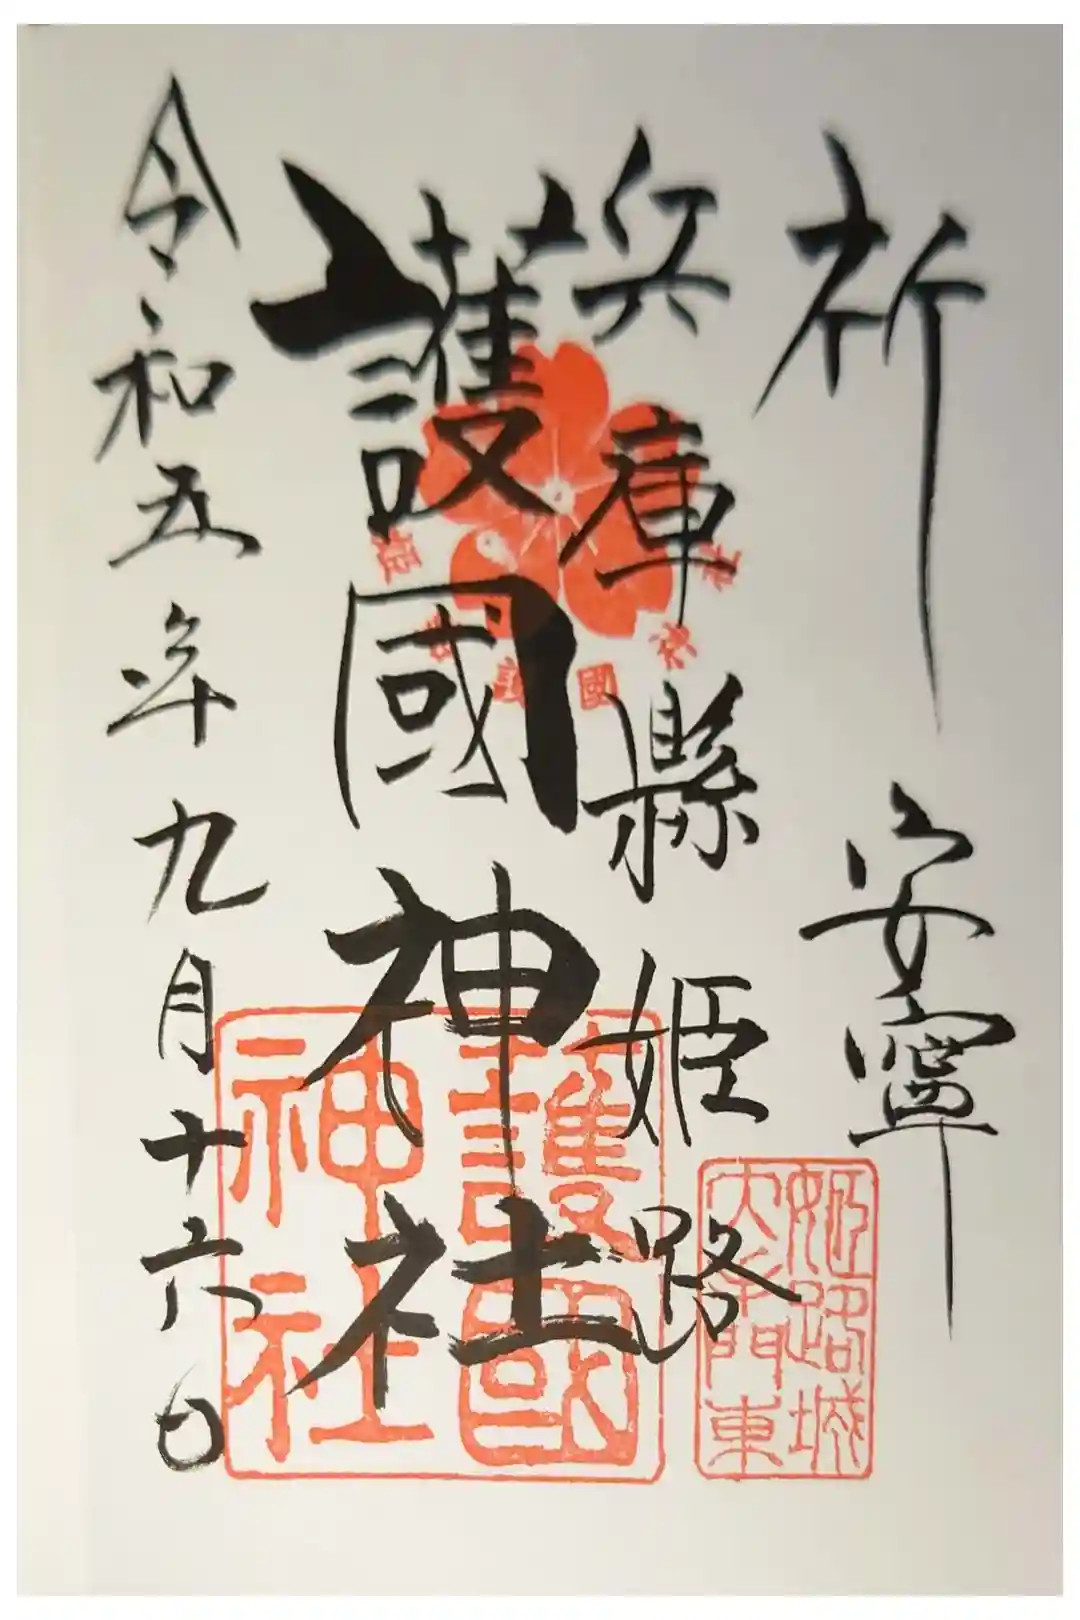 祈 安寧
兵庫縣姫路
護國神社
令和五年九月十六日
護國
神社
姫路城
大手門東